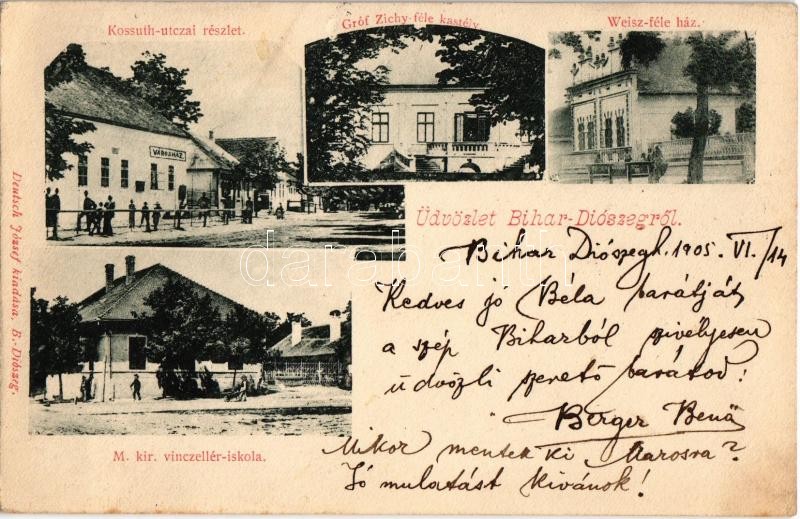 Kossuth-utczai részlet.
Gróf Zichy-féle kastély.
Weisz-féle ház.
VÁROSHÁZ
Üdvözlet Bihar-Diószegről.
Bihar Diószegh. 1905. VI./14
Kedves jó Béla barátját
a szép Biharból szivélyesen
üdvözli szerető barátod!
Berger Benő
Mikor mentek ki Marosra?
Jó mulatást kivánok!
M. kir. vinczellér-iskola.
Deutsch József kiadása, B.-Diószeg.
darabanth.hu